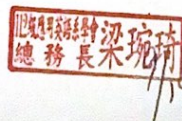 112級應用英語系學會
總務長梁琬琦